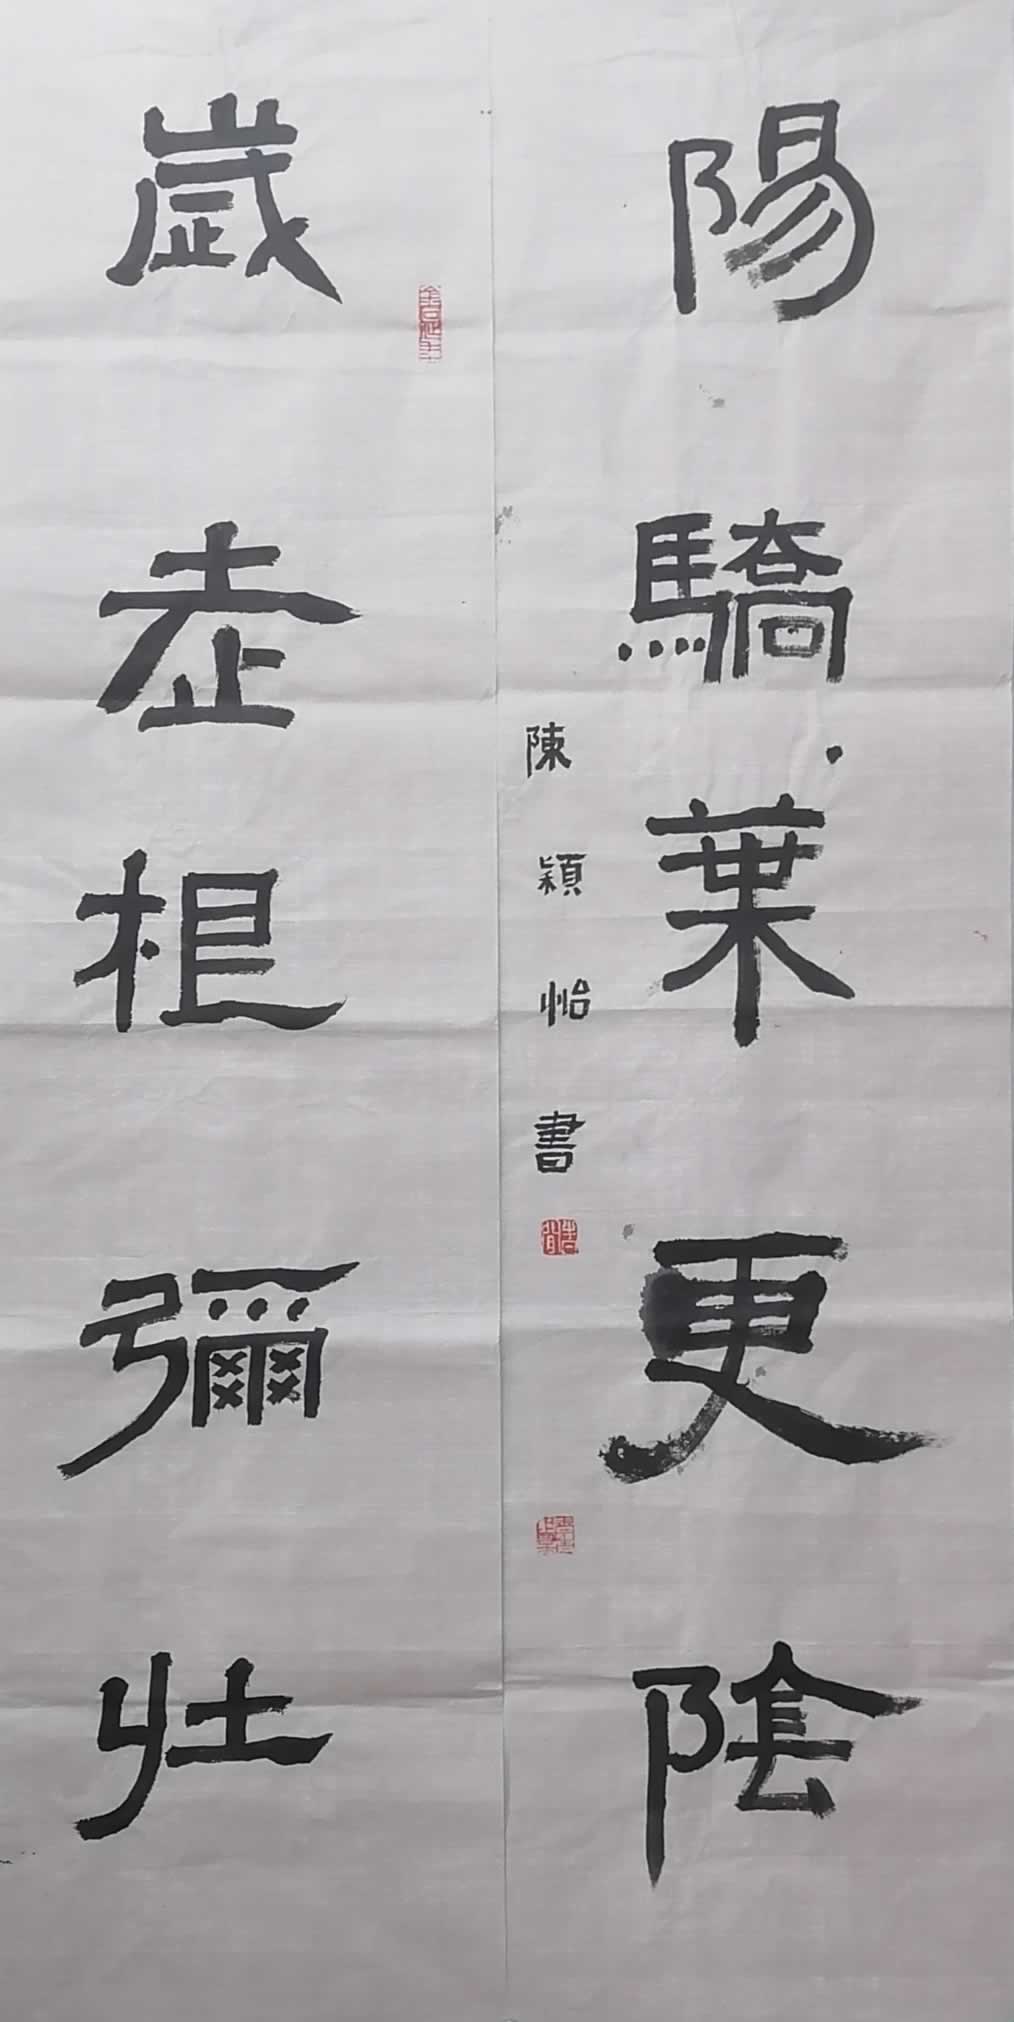 陽驕葉更陰
陳穎怡書
歲老根彌壯